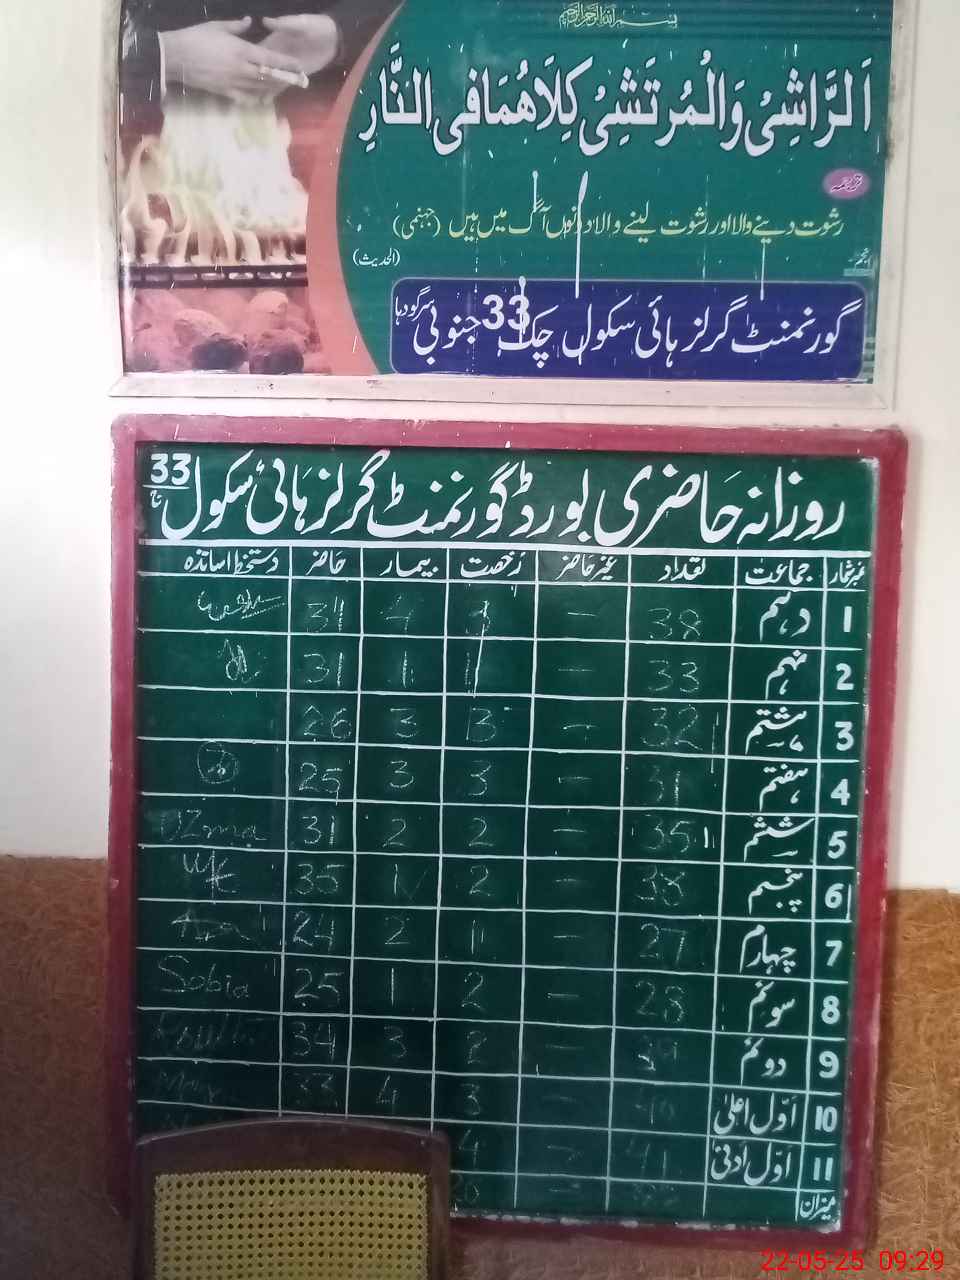 بسم اللہ الرحمن الرحیم
اَلرَّاشِیْ وَالْمُرْتَشِیْ کِلَاهُمَا فِی النَّارِ
ترجمہ
رشوت دینے والا اور رشوت لینے والا دونوں آگ میں ہیں (جہنمی)
(الحدیث)
گورنمنٹ گرلز ہائی سکول چک 33 جنوبی سرگودہا
روزانہ حَاضری بورڈ گورنمنٹ گرلز ہائی سکول 33 ج
نمبر شمار جماعت تعداد غیر حاضر رخصت بیمار حاضر دستخط اساتذہ
1 دہم 38 – 3 4 31
2 نہم 33 – 1 1 31
3 ہشتم 32 – 3 3 26
4 ہفتم 31 – 3 3 25
5 ششم 35 – 2 2 31 Uzma
6 پنجم 38 – 2 1 35 WK
7 چہارم 27 – 1 2 24
8 سوئم 28 – 2 1 25 Sobia
9 دوئم 39 – 2 3 34
10 اَوّل اعلیٰ 40 – 3 4 33
11 اَوّل ادنیٰ 41 – 4
میزان
22-05-25 09:29